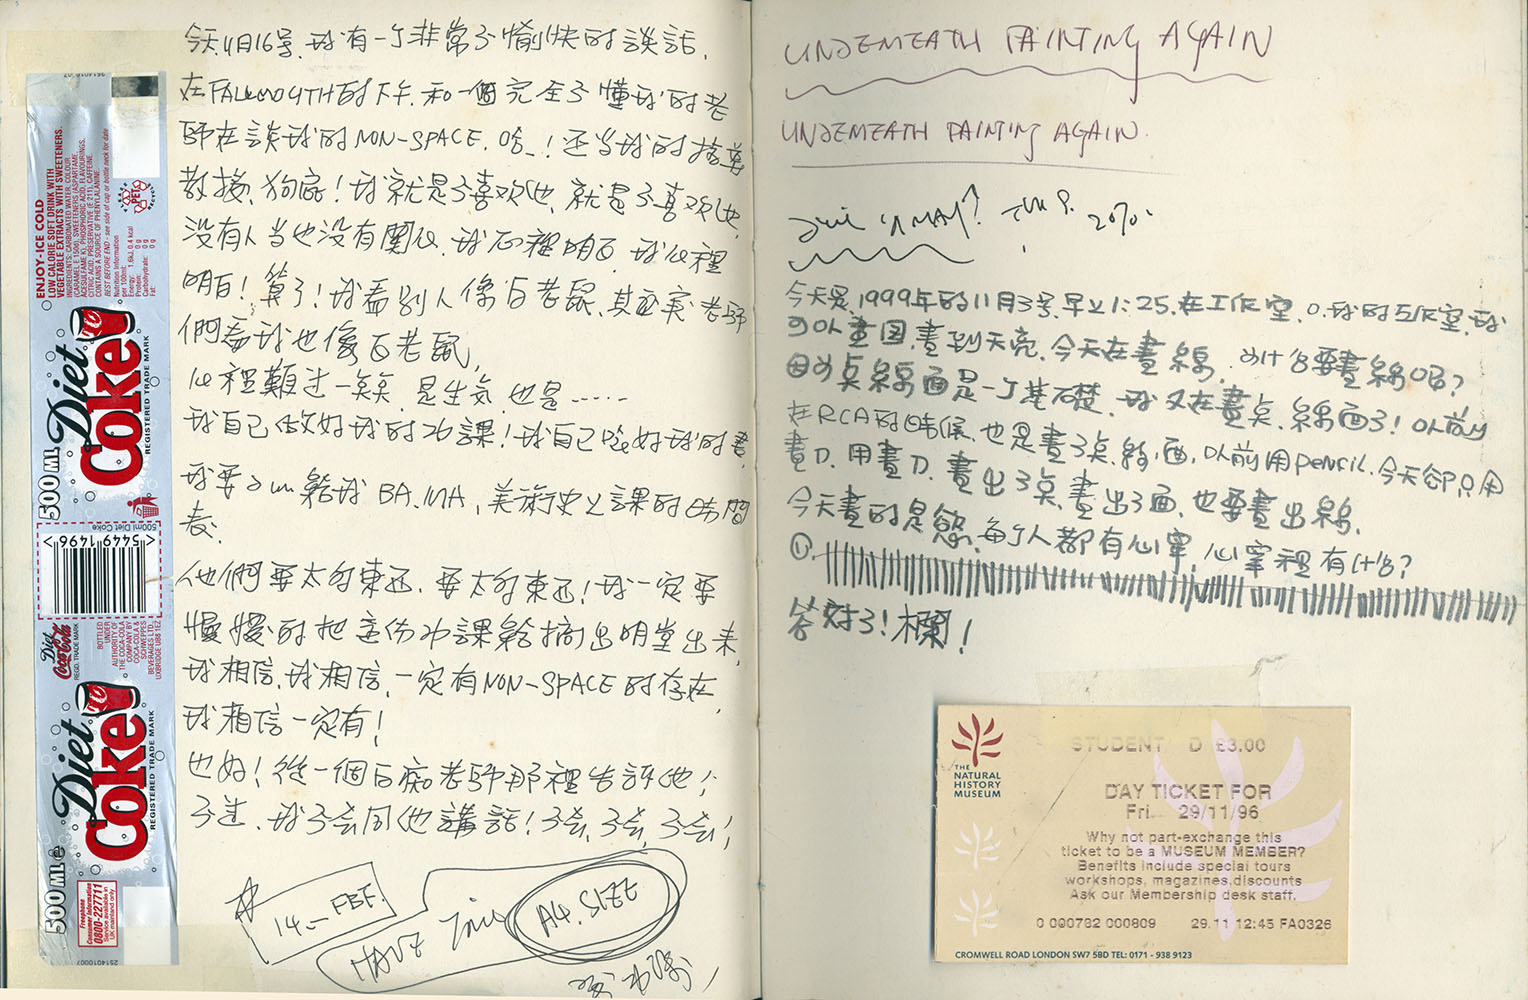 今天, 4月16号. 我有一个非常不愉快的談話.
在FALMOUTH的下午. 和一個完全不懂我的老
師在談我的NON-SPACE. 哈_! 还当我的指導
教授. 狗屁! 我就是不喜欢他, 就是不喜欢他,
没有人当也没有関係. 我心裡明白, 我心裡
明白! 算了! 我看别人像白老鼠, 其实老師
們看我也像白老鼠,
心裡難过一矣矣, 是生氣, 也是......
我自己做好我的功課! 我自己唸好我的書,
我要 給我 BA. MA, 美術史之課的時間
表.
他們要太多東西. 要太多東西! 我一定要
慢慢的把這份功課給搞出明堂出来,
我相信, 我相信, 一定有NON-SPACE的存在,
我相信一定有!
也好! 從一個白痴老師那裡告訴他!
不过, 我不会同他講話! 不会, 不会, 不会!
14_ FEF.
HAVE
A4. SIZE
ENJOY-ICE COLD
LOW CALORIE SOFT DRINK WITH
VEGETABLE EXTRACTS WITH SWEETENERS.
INGREDIENTS: CARBONATED WATER, COLOUR
(CARAMEL E 150d), SWEETENERS (ASPARTAME,
ACESULFAME K), PHOSPHORIC ACID, FLAVOURINGS,
CITRIC ACID, PRESERVATIVE (E 211), CAFFEINE.
CONTAINS A SOURCE OF PHENYLALANINE.
BEST BEFORE END - see side of cap or bottle neck for date
Nutrition Information
per 100ml:
Energy: 1.6kJ, 0.4 kcal
Protein: 0g
Carbohydrate: 0g
Fat: 0g
PET
500 ML
Diet
Coke
REGISTERED TRADE MARK
500ml Diet Coke
5449 1496
Diet
Coca-Cola
REGD. TRADE MARK
BOTTLED
UNDER
AUTHORITY OF
THE COCA-COLA
COMPANY BY
COCA-COLA &
SCHWEPPES
BEVERAGES LTD.,
UXBRIDGE UB8 1EZ
500 ML e
Diet
Coke
REGISTERED TRADE MARK
Freephone
Consumer Information
0800-227711
Service available in
UK mainland only
2514010007
UNDEMEATH PAINTING AGAIN
UNDEMEATH PAINTING AGAIN.
今天是, 1999年的11月3号. 早上1:25. 在工作室. 我的工作室, 我
可以畫图. 畫到天亮. 今天在畫線. 为什么要畫線呢?
因为点線面是一个基礎. 我又在畫点. 線. 面了! 以前
在RCA的時候, 也是畫了点, 線, 面, 以前用pencil. 今天卻只用
畫刀. 用畫刀. 畫出了点, 畫出了面, 也要畫出線.
今天畫的是慾. 每个人都有心牢, 心牢裡有什么?
①.
答对了! 欄!
THE
NATURAL
HISTORY
MUSEUM
STUDENT D £3.00
DAY TICKET FOR
Fri 29/11/96
Why not part-exchange this
ticket to be a MUSEUM MEMBER?
Benefits include special tours
workshops, magazines, discounts
Ask our Membership desk staff.
0 000782 000809 29.11 12:45 FA0326
CROMWELL ROAD LONDON SW7 5BD TEL: 0171 - 938 9123